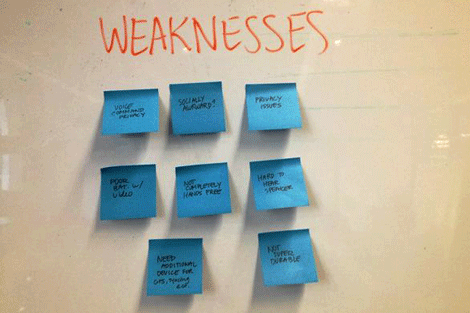 WEAKNESSES
VOICE
COMMAND
PRIVACY
SOCIALLY
AWKWARD?
PRIVACY
ISSUES
POOR
BAT. W/
NOT
COMPLETELY
HANDS FREE
HARD TO
HEAR
SPEAKER
NEED
ADDITIONAL
DEVICE FOR
GPS,
NOT SUPER
DURABLE